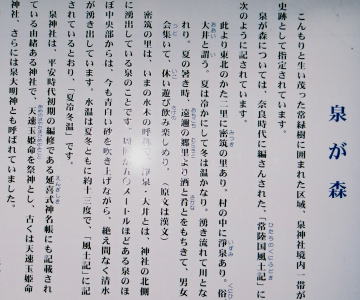 泉が森
こんもりと生い茂った常緑樹に囲まれた区域、泉神社境内一帯が
史跡として指定されています。
泉が森については、奈良時代に編さんされた、「常陸国風土記」に
次のように記されています。
此より東北のかた二里に密筑の里あり、村の中に浄泉あり、俗
大井と謂う。夏は冷かにして冬は温かなり。湧き流れて川とな
れり。夏の暑き時、遠邇の郷里より酒と肴とをもちきて、男女
会集いて、休い遊び飲み楽しめり。（原文は漢文）
密筑の里は、いまの水木の呼称で、浄泉・大井とは、神社の北側
に湧出している泉のことです。周囲五〇メートルほどある泉のほ
ぼ中央部からは、今も青白い砂を吹き上げながら、絶え間なく清水
が湧き出ています。水温は夏冬ともに約十三度で、「風土記」に記
されているとおり、「夏冷冬温」です。
泉神社は、平安時代初期の編修である延喜式神名帳にも記載され
ている由緒ある神社で、天速玉姫命を祭神とし、古くは天速玉姫命
神社、さらには泉大明神とも呼ばれていました。